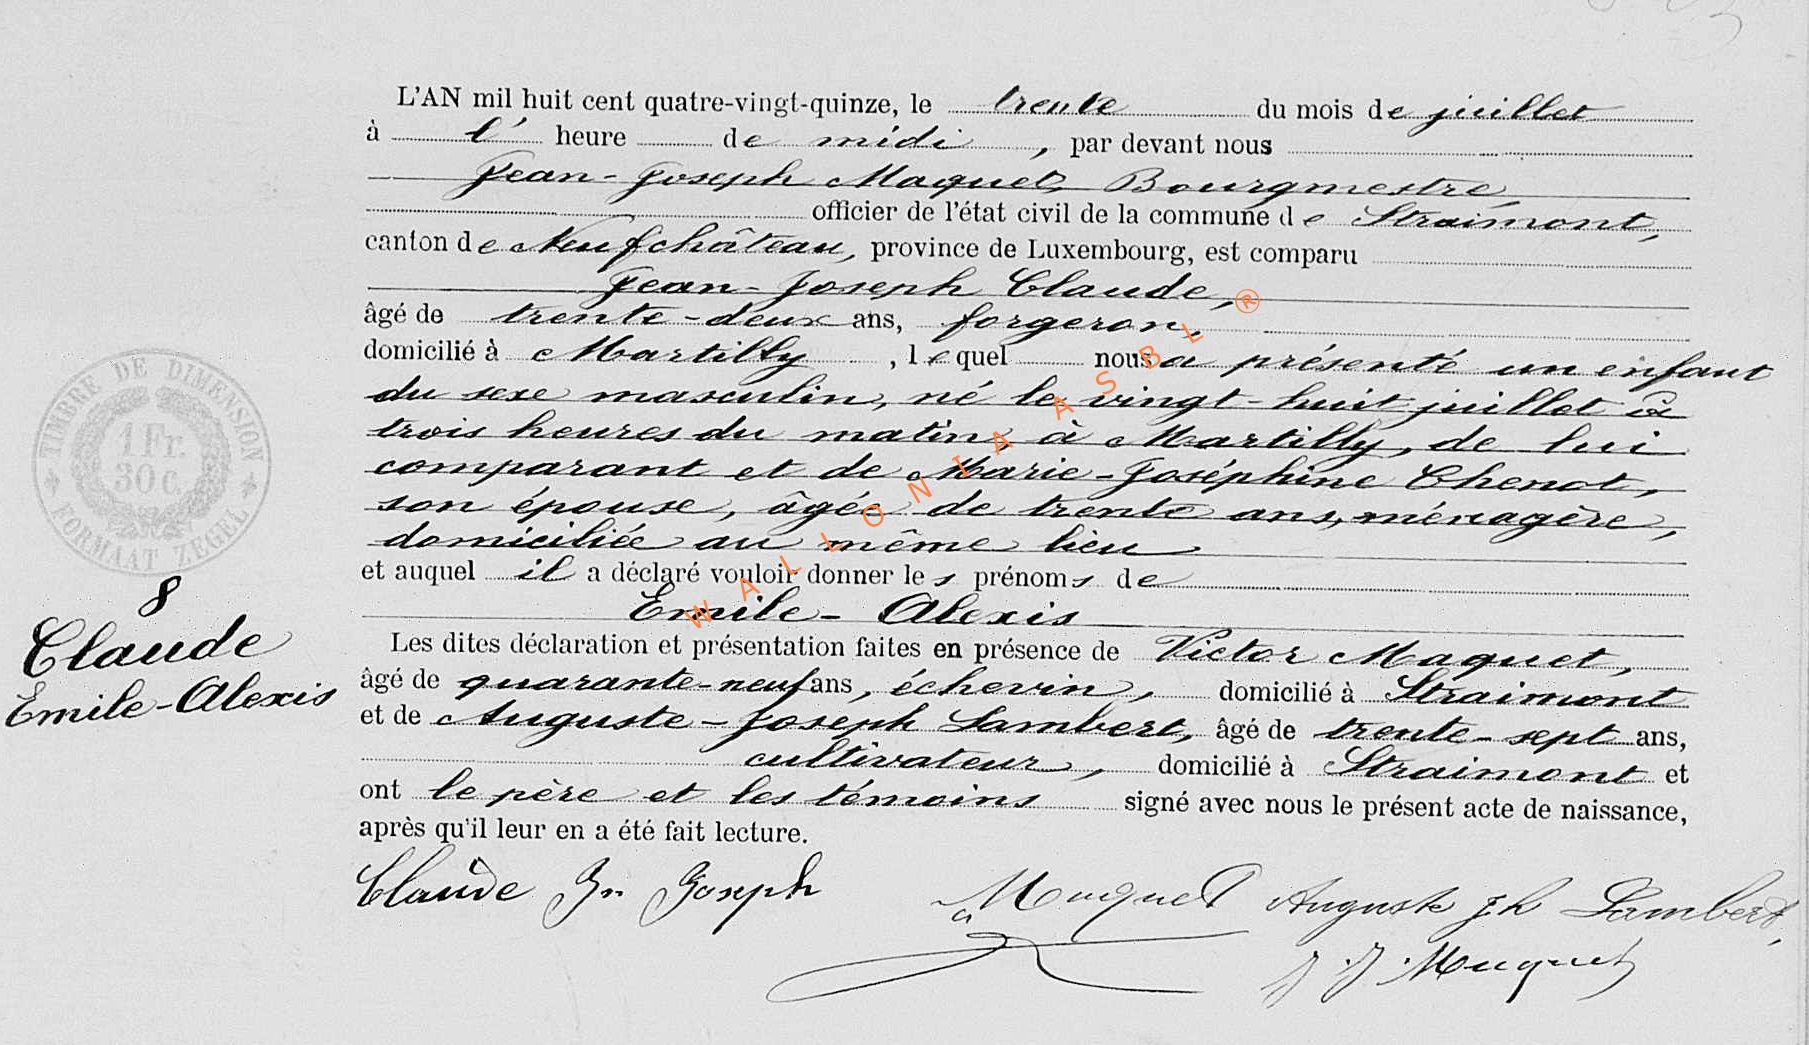 L'AN mil huit cent quatre-vingt-quinze, le trente du mois de juillet
à l' heure de midi, par devant nous
Jean-Joseph Maquet, Bourgmestre,
officier de l'état civil de la commune de Straimont,
canton de Neufchâteau, province de Luxembourg, est comparu
Jean-Joseph Claude,
âgé de trente-deux ans, forgeron,
domicilié à Martilly, lequel nous a présenté un enfant
du sexe masculin, né le vingt-huit juillet à
trois heures du matin, à Martilly, de lui
comparant et de Marie-Joséphine Chenot,
son épouse, âgée de trente ans, ménagère,
domiciliée au même lieu
et auquel il a déclaré vouloir donner les prénoms de
Emile-Alexis
Les dites déclaration et présentation faites en présence de Victor Maquet,
âgé de quarante-neuf ans, échevin, domicilié à Straimont
et de Auguste-Joseph Lambert, âgé de trente-sept ans,
cultivateur, domicilié à Straimont et
ont le père et les témoins signé avec nous le présent acte de naissance,
après qu'il leur en a été fait lecture.
Claude Jn Joseph
Maquet
Auguste Jh Lambert,
J J Maquet
TIMBRE DE DIMENSION
1 Fr.
30 c.
FORMAAT ZEGEL
8
Claude
Emile-Alexis
WALLONIA ASBL ®